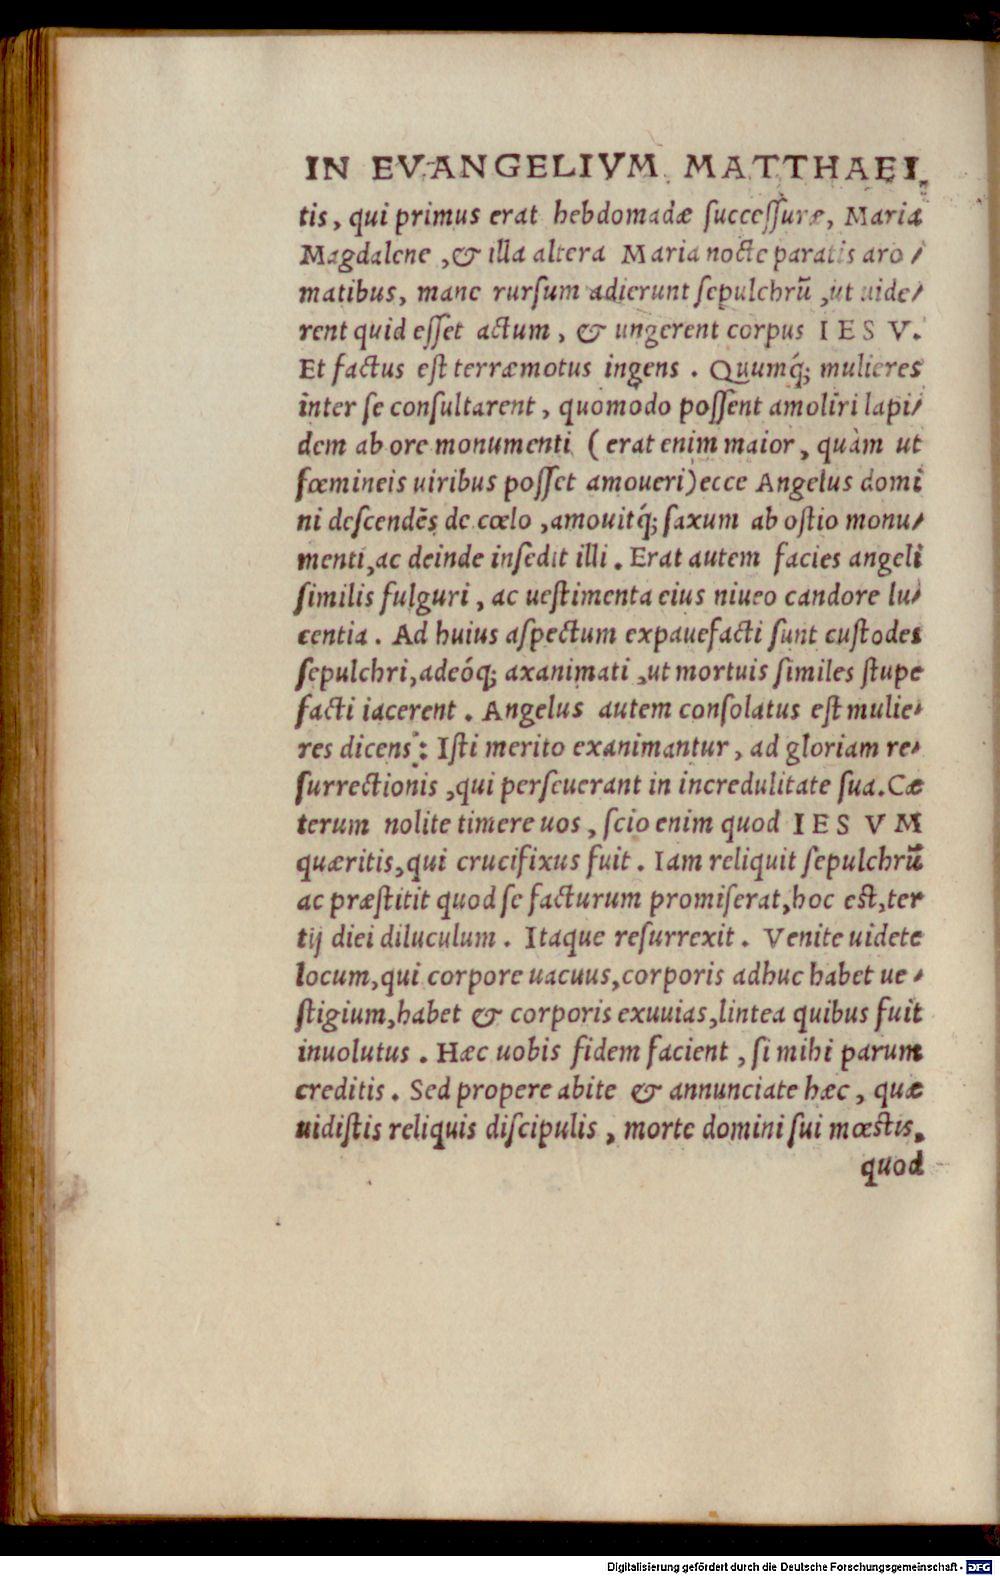 IN EVANGELIVM MATTHAEI.
tis, qui primus erat hebdomadæ ſucceſſuræ, Maria
Magdalene, & illa altera Maria nocte paratis aro⸗
matibus, mane rurſum adierunt ſepulchrū, ut uide⸗
rent quid eſſet actum, & ungerent corpus IESV.
Et factus eſt terræmotus ingens. Quumq́; mulieres
inter ſe conſultarent, quomodo poſſent amoliri lapi⸗
dem ab ore monumenti (erat enim maior, quàm ut
fœmineis uiribus poſſet amoueri) ecce Angelus domi
ni deſcendēs de cœlo, amouitq́; ſaxum ab oſtio monu⸗
menti, ac deinde inſedit illi. Erat autem facies angeli
ſimilis fulguri, ac ueſtimenta eius niueo candore lu⸗
centia. Ad huius aſpectum expauefacti ſunt cuſtodes
ſepulchri, adeóq; axanimati, ut mortuis ſimiles ſtupe
facti iacerent. Angelus autem conſolatus eſt mulie⸗
res dicens: Iſti merito exanimantur, ad gloriam re⸗
ſurrectionis, qui perſeuerant in incredulitate ſua. Cæ
terum nolite timere uos, ſcio enim quod IESVM
quæritis, qui crucifixus fuit. Iam reliquit ſepulchrū
ac præſtitit quod ſe facturum promiſerat, hoc eſt, ter
tij diei diluculum. Itaque reſurrexit. Venite uidete
locum, qui corpore uacuus, corporis adhuc habet ue⸗
ſtigium, habet & corporis exuuias, lintea quibus fuit
inuolutus. Hæc uobis fidem facient, ſi mihi parum
creditis. Sed propere abite & annunciate hæc, quæ
uidiſtis reliquis diſcipulis, morte domini ſui mœstis,
quod
Digitalisierung gefördert durch die Deutsche Forschungsgemeinschaft - DFG